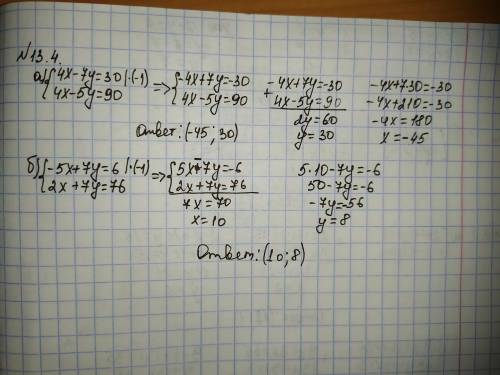 №13.4.
а) { 4x-7y=30 |·(-1) => { -4x+7y=-30
4x-5y=90 4x-5y=90
+ -4x+7y=-30
4x-5y=90
2y=60
y=30
-4x+7·30=-30
-4x+210=-30
-4x=180
x=-45
Ответ: (-45; 30)
б) { -5x+7y=6 |·(-1) => { 5x-7y=-6
2x+7y=76 2x+7y=76
7x=70
x=10
5·10-7y=-6
50-7y=-6
-7y=-56
y=8
Ответ: (10; 8)